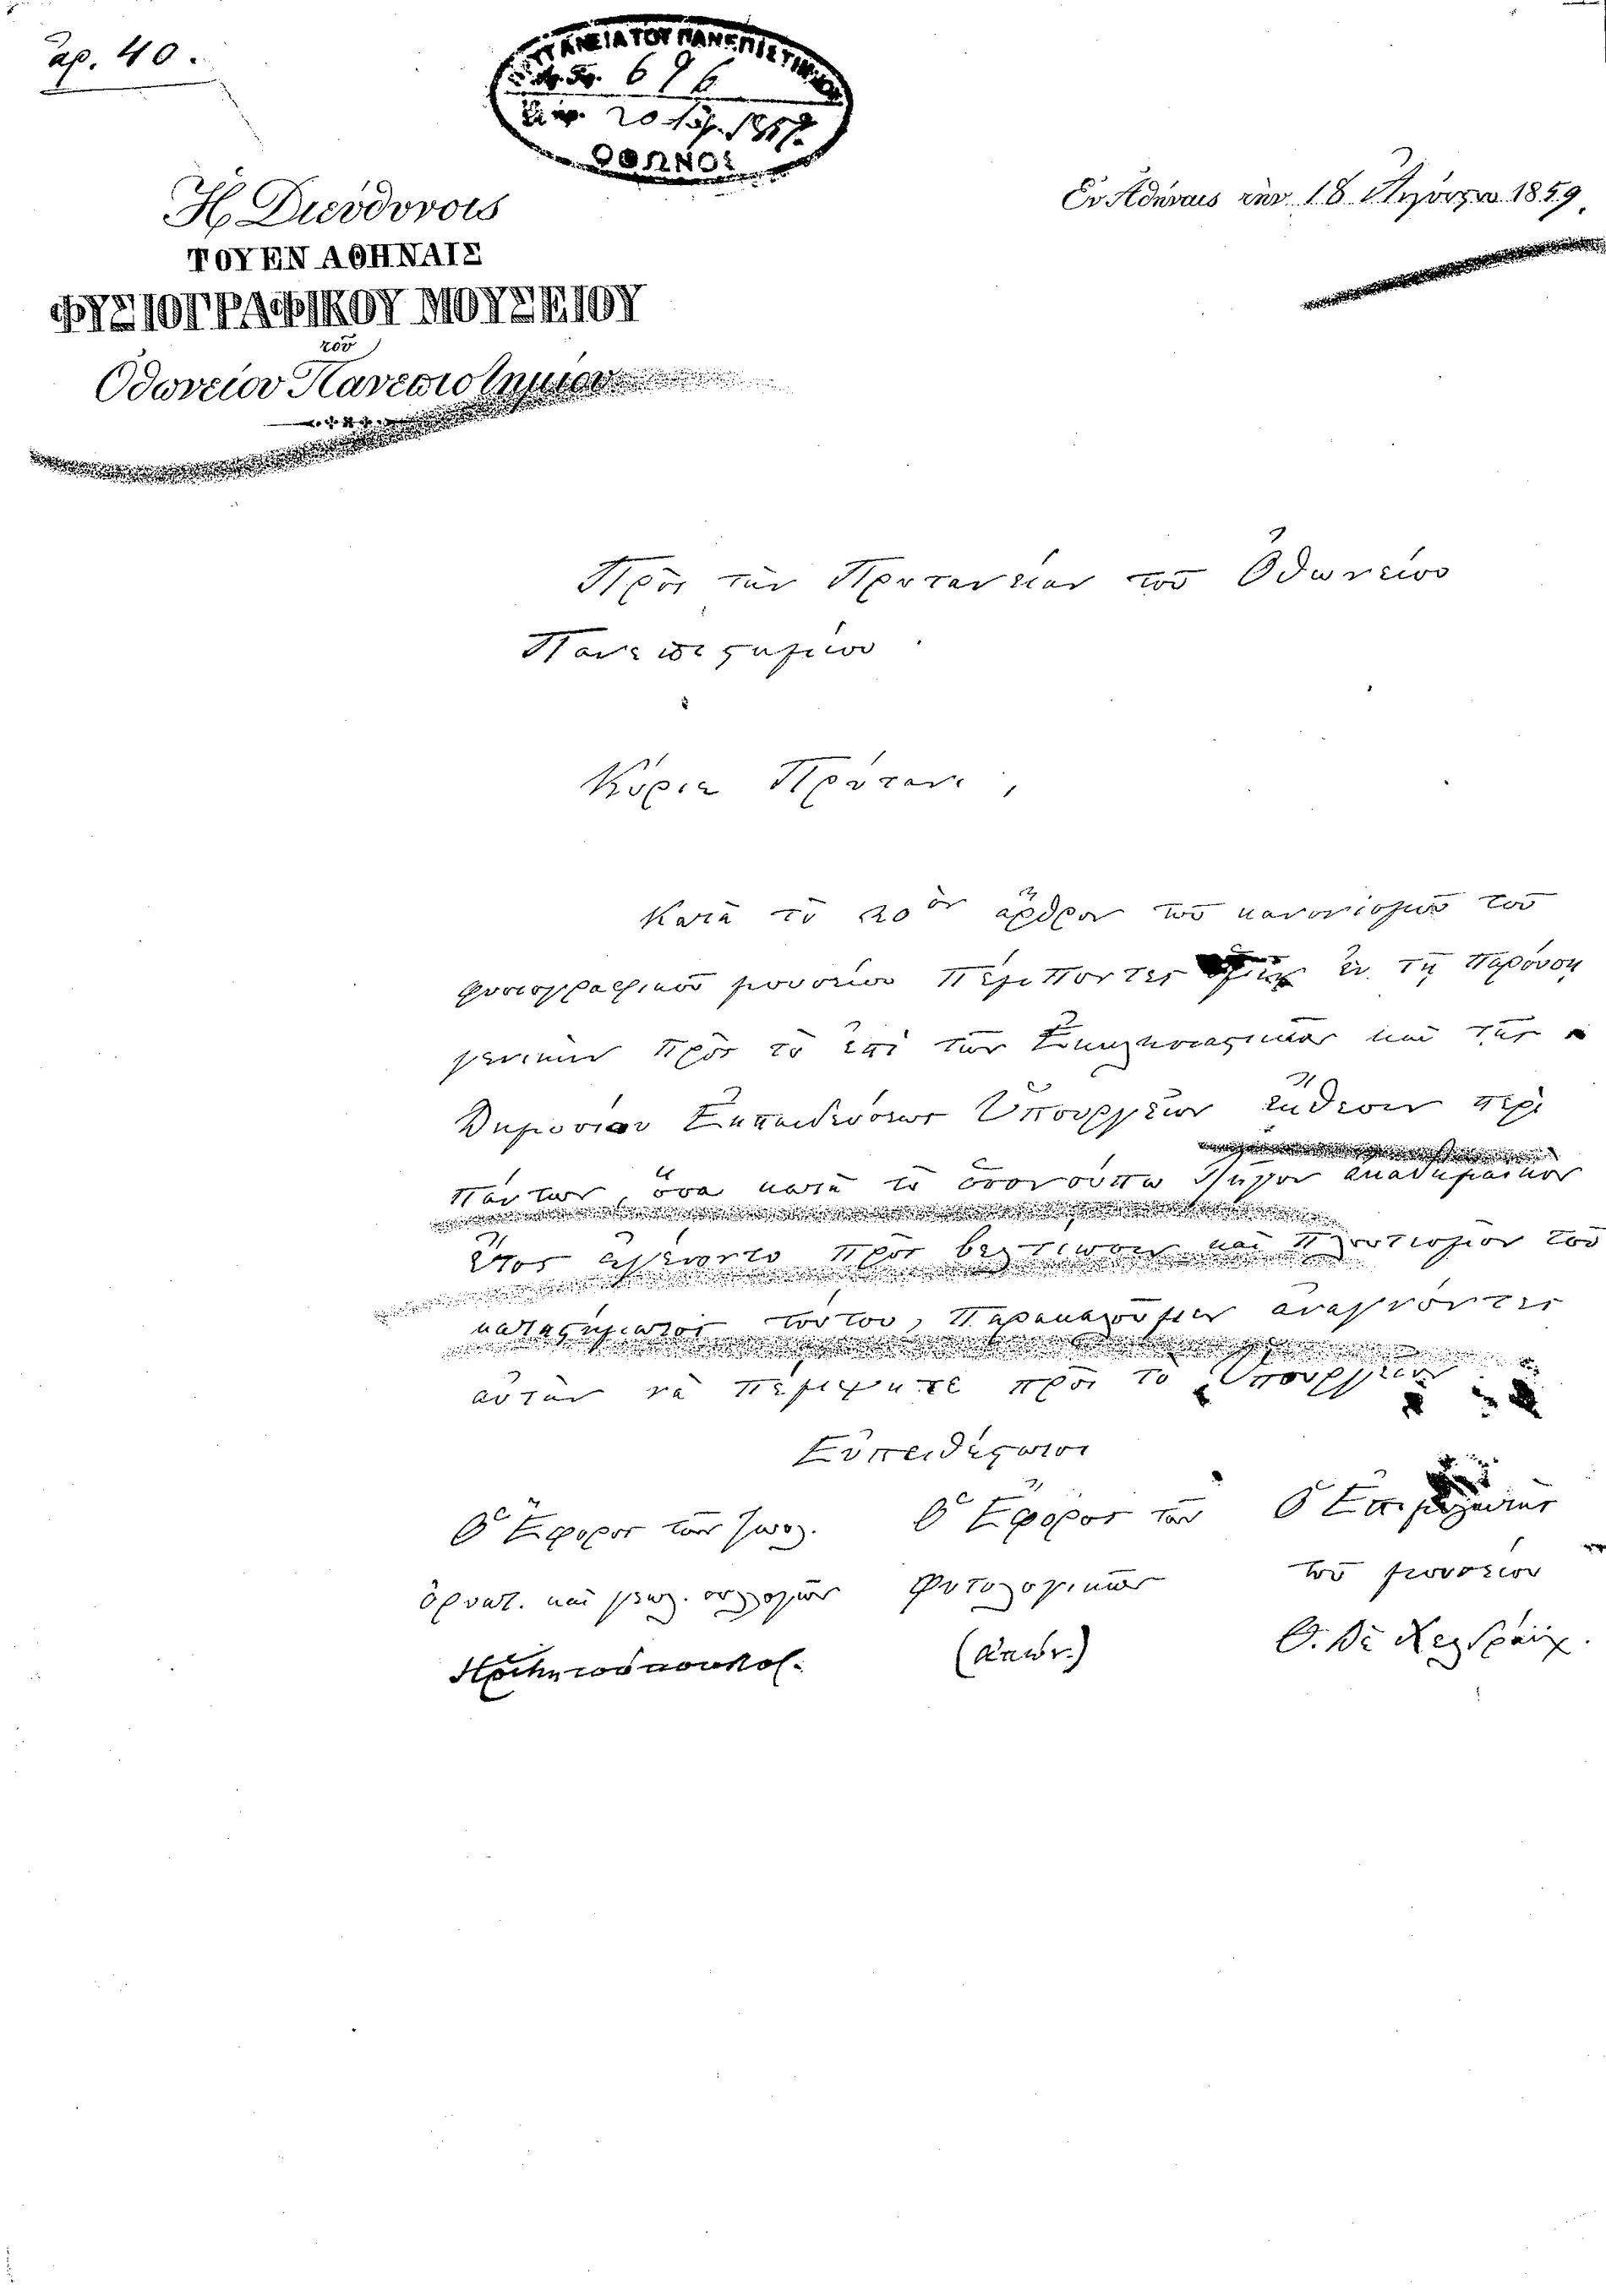 ἀρ. 40.
ΠΡΥΤΑΝΕΙΑ ΤΟΥ ΠΑΝΕΠΙΣΤΗΜΙΟΥ
696
20
ΟΘΩΝΟΣ
Ἡ Διεύθυνσις
ΤΟΥ ΕΝ ΑΘΗΝΑΙΣ
ΦΥΣΙΟΓΡΑΦΙΚΟΥ ΜΟΥΣΕΙΟΥ
τοῦ
Ὀθωνείου Πανεπιστημίου
Ἐν Ἀθήναις τὴν 18 Αὐγούστου 1859
Πρὸς τὴν Πρυτανείαν τοῦ Ὀθωνείου
Πανεπιστημίου.
Κύριε Πρύτανι,
Κατὰ τὸ 20ὸν ἄρθρον τοῦ κανονισμοῦ τοῦ
φυσιογραφικοῦ μουσείου πέμποντες ἐν τῇ παρούσῃ
γενικὴν πρὸς τὸ ἐπὶ τῶν Ἐκκλησιαστικῶν καὶ τῆς
Δημοσίου Ἐκπαιδεύσεως Ὑπουργεῖον ἔκθεσιν περὶ
πάντων, ὅσα κατὰ τὸ ὁσονούπω λῆγον ἀκαδημαϊκὸν
ἔτος ἐγένοντο πρὸς βελτίωσιν καὶ πλουτισμὸν τοῦ
καταστήματος τούτου, παρακαλοῦμεν ἀναγνόντες
αὐτὴν νὰ πέμψητε πρὸς τὸ Ὑπουργεῖον
Εὐπειθέστατοι
Ὁ Ἔφορος τῶν ζωολ.
ὀρυκτ. καὶ γεωλ. συλλογῶν
Ὁ Ἔφορος τῶν
φυτολογικῶν
(ἀπών.)
Ὁ Ἐπιμελητὴς
τοῦ μουσείου
Θ. Δὲ Χελδράιχ.